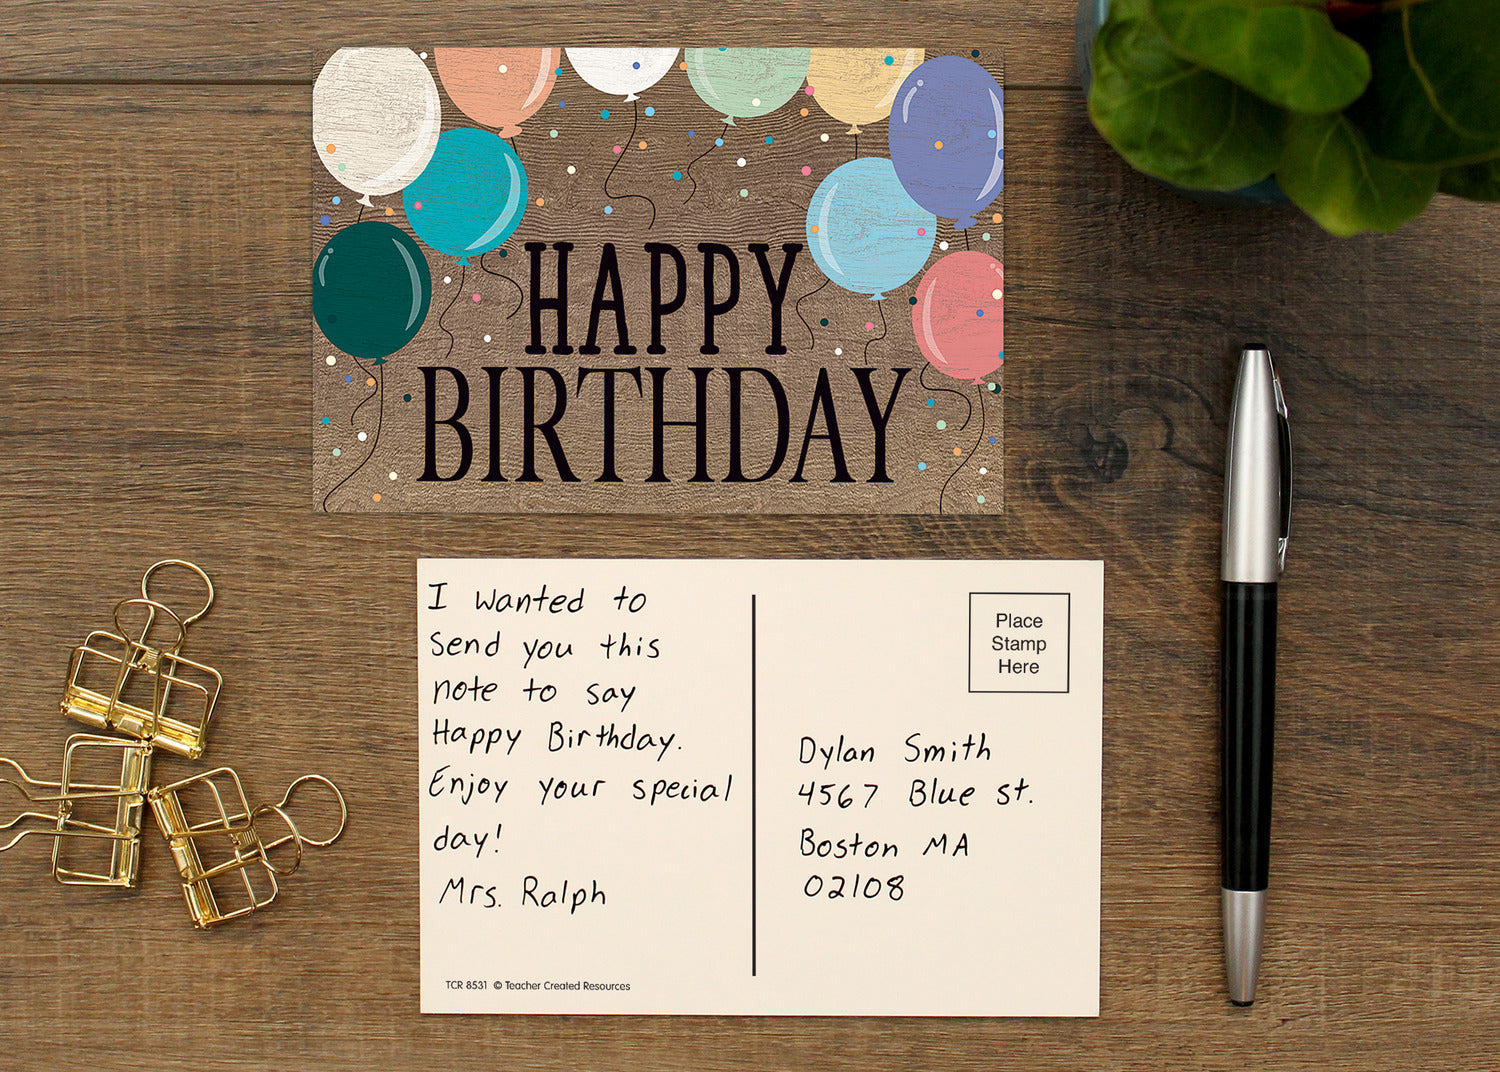 HAPPY
BIRTHDAY
I wanted to
Send you this
note to say
Happy Birthday.
Enjoy your special
day!
Mrs. Ralph
TCR 8531 © Teacher Created Resources
Place
Stamp
Here
Dylan Smith
4567 Blue st.
Boston MA
02108